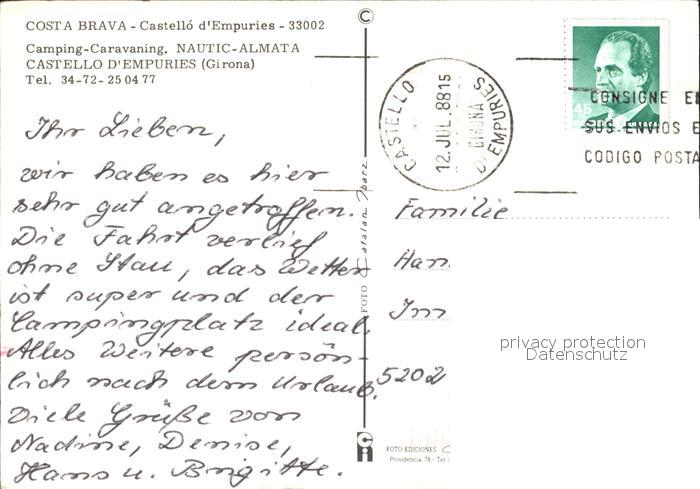 COSTA BRAVA - Castelló d'Empuries - 33002
Camping-Caravaning, NAUTIC-ALMATA
CASTELLO D'EMPURIES (Girona)
Tel. 34-72-25 04 77
Ihr Lieben,
wir haben es hier
sehr gut angetroffen.
Die Fahrt verlief
ohne Stau, das Wetter
ist super und der
Campingplatz ideal.
Alles Weitere persön-
lich nach dem Urlaub.
Viele Grüße von
Nadine, Denise,
Hans u. Brigitte.
©
FOTO Catalan Ibarz
ci
CASTELLO D'EMPURIES
GIRONA
12.JUL.8815
48
CONSIGNE E
SUS ENVIOS E
CODIGO POSTA
Familie
Han
Imm
5202
privacy protection
Datenschutz
FOTO-EDICIONES C
Providencia 78 - Tel